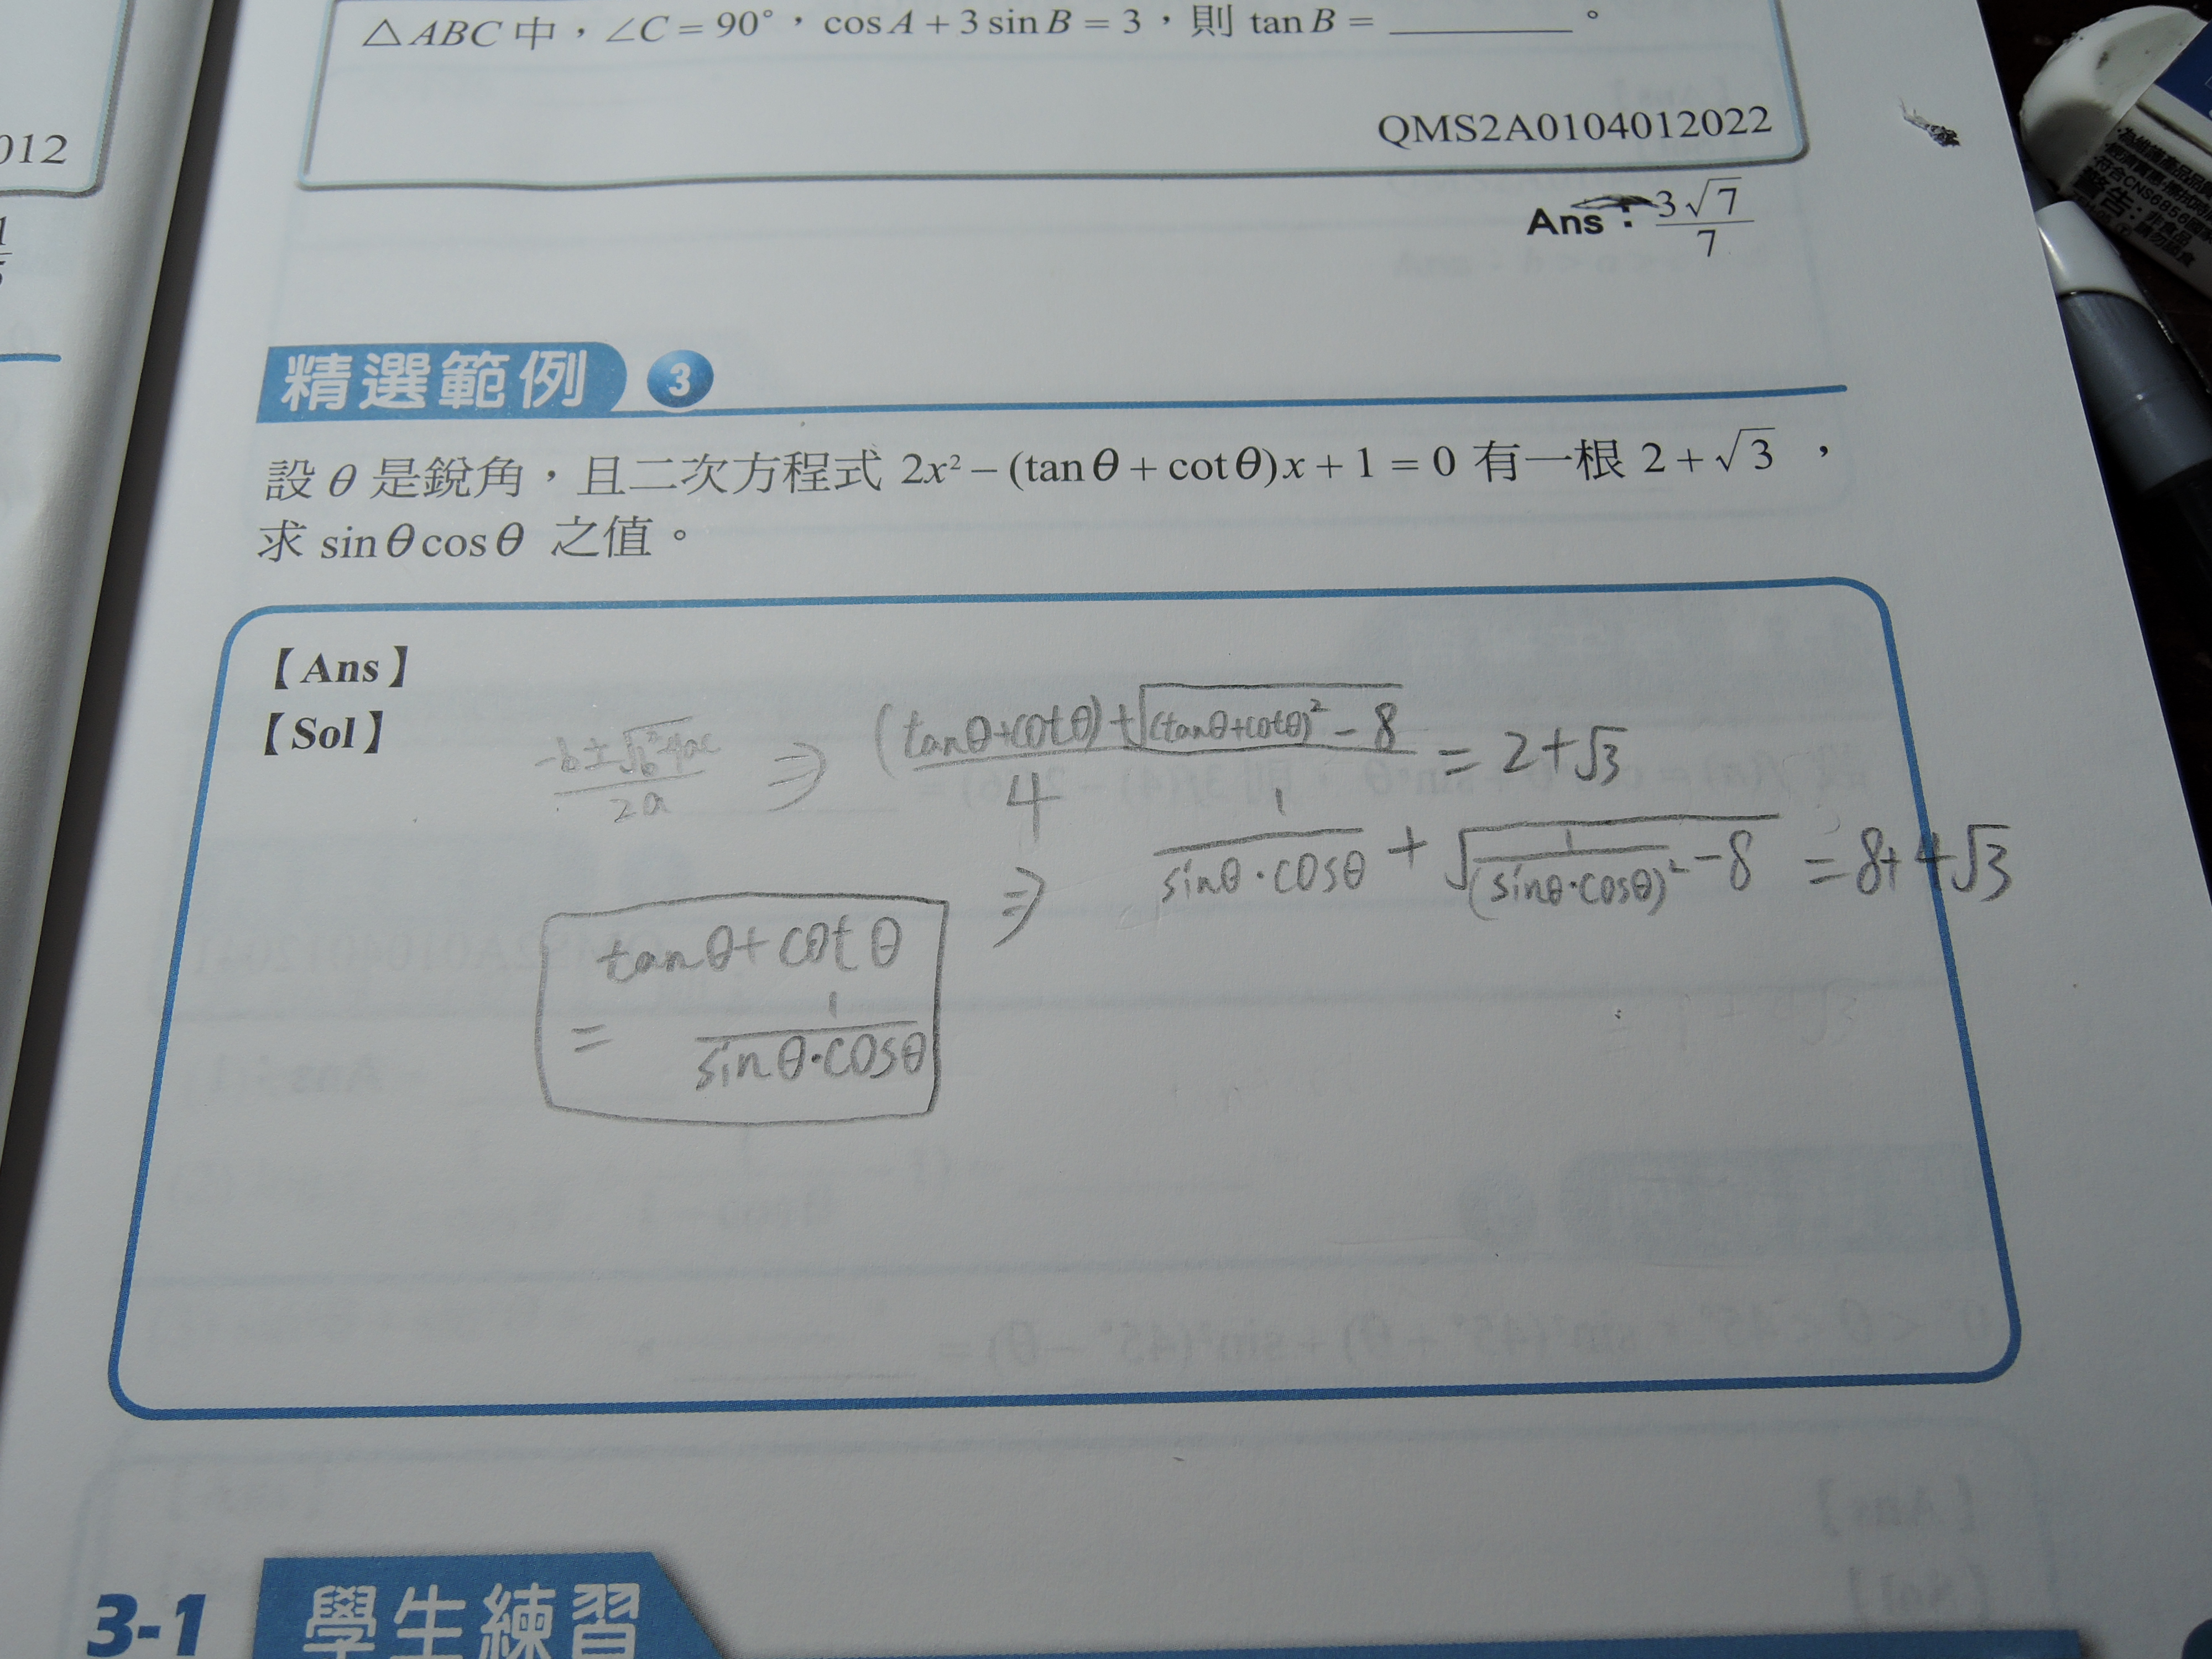 △ABC 中，∠C = 90°，cos A + 3 sin B = 3，則 tan B = ________。
012
QMS2A0104012022
Ans：3√7/7
精選範例 3
設 θ 是銳角，且二次方程式 2x² − (tan θ + cot θ)x + 1 = 0 有一根 2 + √3 ，
求 sin θ cos θ 之值。
【Ans】
【Sol】
(-b ± √(b²-4ac))/2a ⇒ ((tanθ+cotθ)+√((tanθ+cotθ)²-8))/4 = 2+√3
⇒ 1/(sinθ·cosθ) + √(1/(sinθ·cosθ)²-8) = 8+4√3
tanθ+cotθ
= 1/(sinθ·cosθ)
3-1 學生練習
警告：非食品
請勿吞食